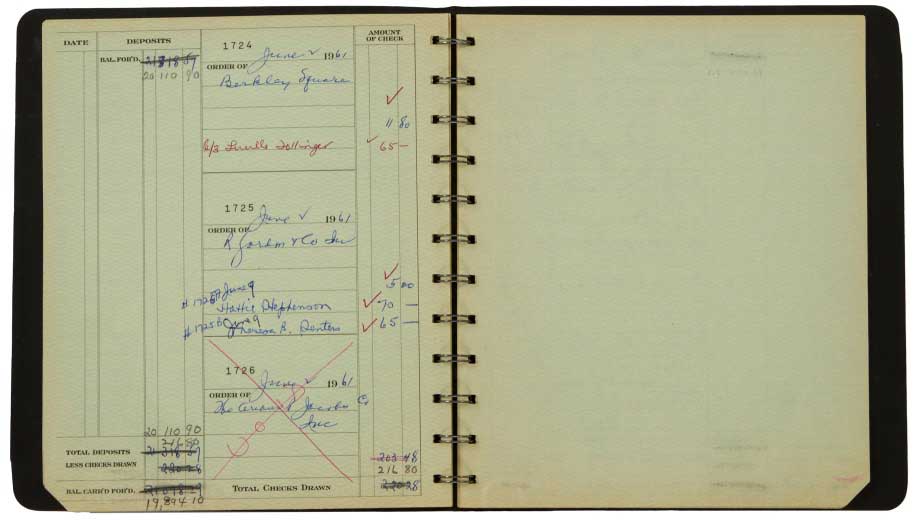 DATE DEPOSITS AMOUNT OF CHECK
BAL. FOR'D.
20 110 90
1724
June 2 1961
ORDER OF
Berkley Square
11 80
6/3 Lucille Dollinger 65 —
1725
June 2 1961
ORDER OF
& Co Inc
5 00
#1725A June 9
Hattie Stephenson 70 —
#1725B June 9
Theresa B. 65 —
1726
June 2 1961
ORDER OF
The Jacobs Co
Inc
Void
20 110 90
216 80
TOTAL DEPOSITS
203 48
LESS CHECKS DRAWN
220 28
216 80
BAL. CARR'D FOR'D. TOTAL CHECKS DRAWN 220 28
19,894 10